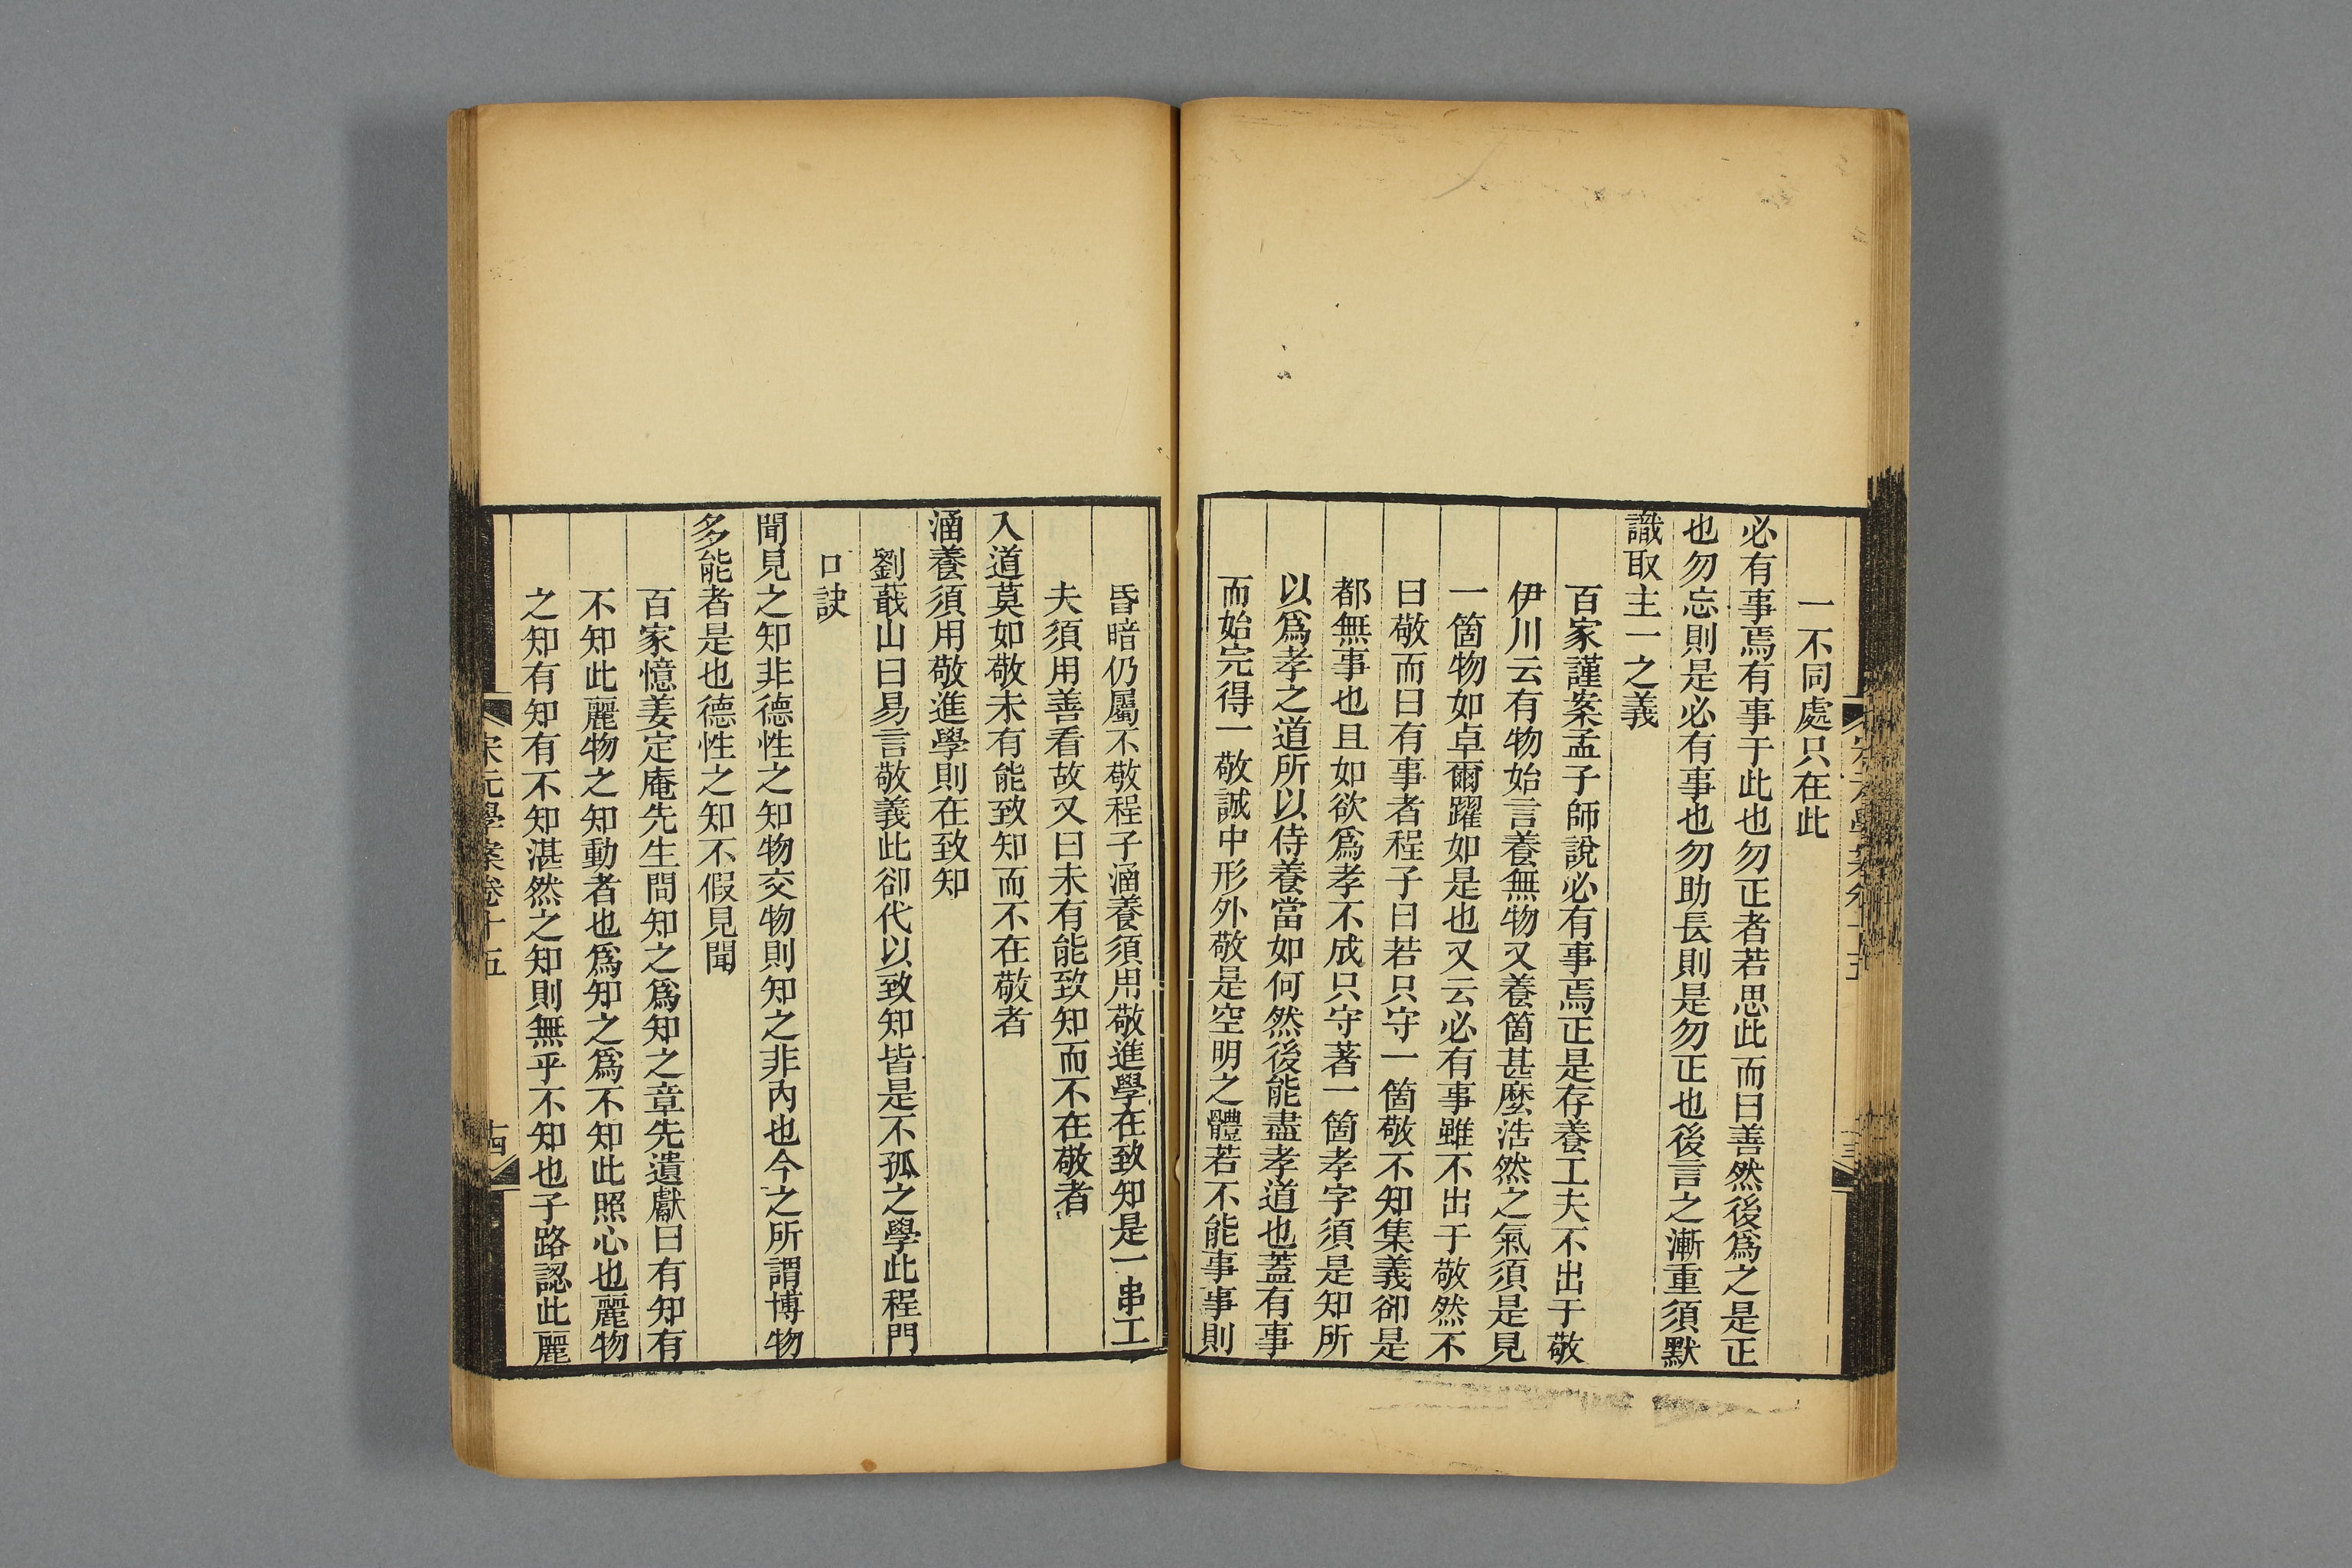 一不同處只在此
必有事焉有事于此也勿正者若思此而曰善然後爲之是正
也勿忘則是必有事也勿助長則是勿正也後言之漸重須默
識取主一之義
百家謹案孟子師說必有事焉正是存養工夫不出于敬
伊川云有物始言養無物又養箇甚麼浩然之氣須是見
一箇物如卓爾躍如是也又云必有事雖不出于敬然不
曰敬而曰有事者程子曰若只守一箇敬不知集義卻是
都無事也且如欲爲孝不成只守著一箇孝字須是知所
以爲孝之道所以侍養當如何然後能盡孝道也蓋有事
而始完得一敬誠中形外敬是空明之體若不能事事則
昏暗仍屬不敬程子涵養須用敬進學在致知是一串工
夫須用善看故又曰未有能致知而不在敬者
入道莫如敬未有能致知而不在敬者
涵養須用敬進學則在致知
劉蕺山曰易言敬義此卻代以致知皆是不孤之學此程門
口訣
聞見之知非德性之知物交物則知之非內也今之所謂博物
多能者是也德性之知不假見聞
百家憶姜定庵先生問知之爲知之章先遺獻曰有知有
不知此麗物之知動者也爲知之爲不知此照心也麗物
之知有知有不知湛然之知則無乎不知也子路認此麗
宋元學案卷十五